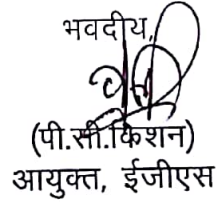 भवदीय,
(पी.सी.किशन)
आयुक्त, ईजीएस